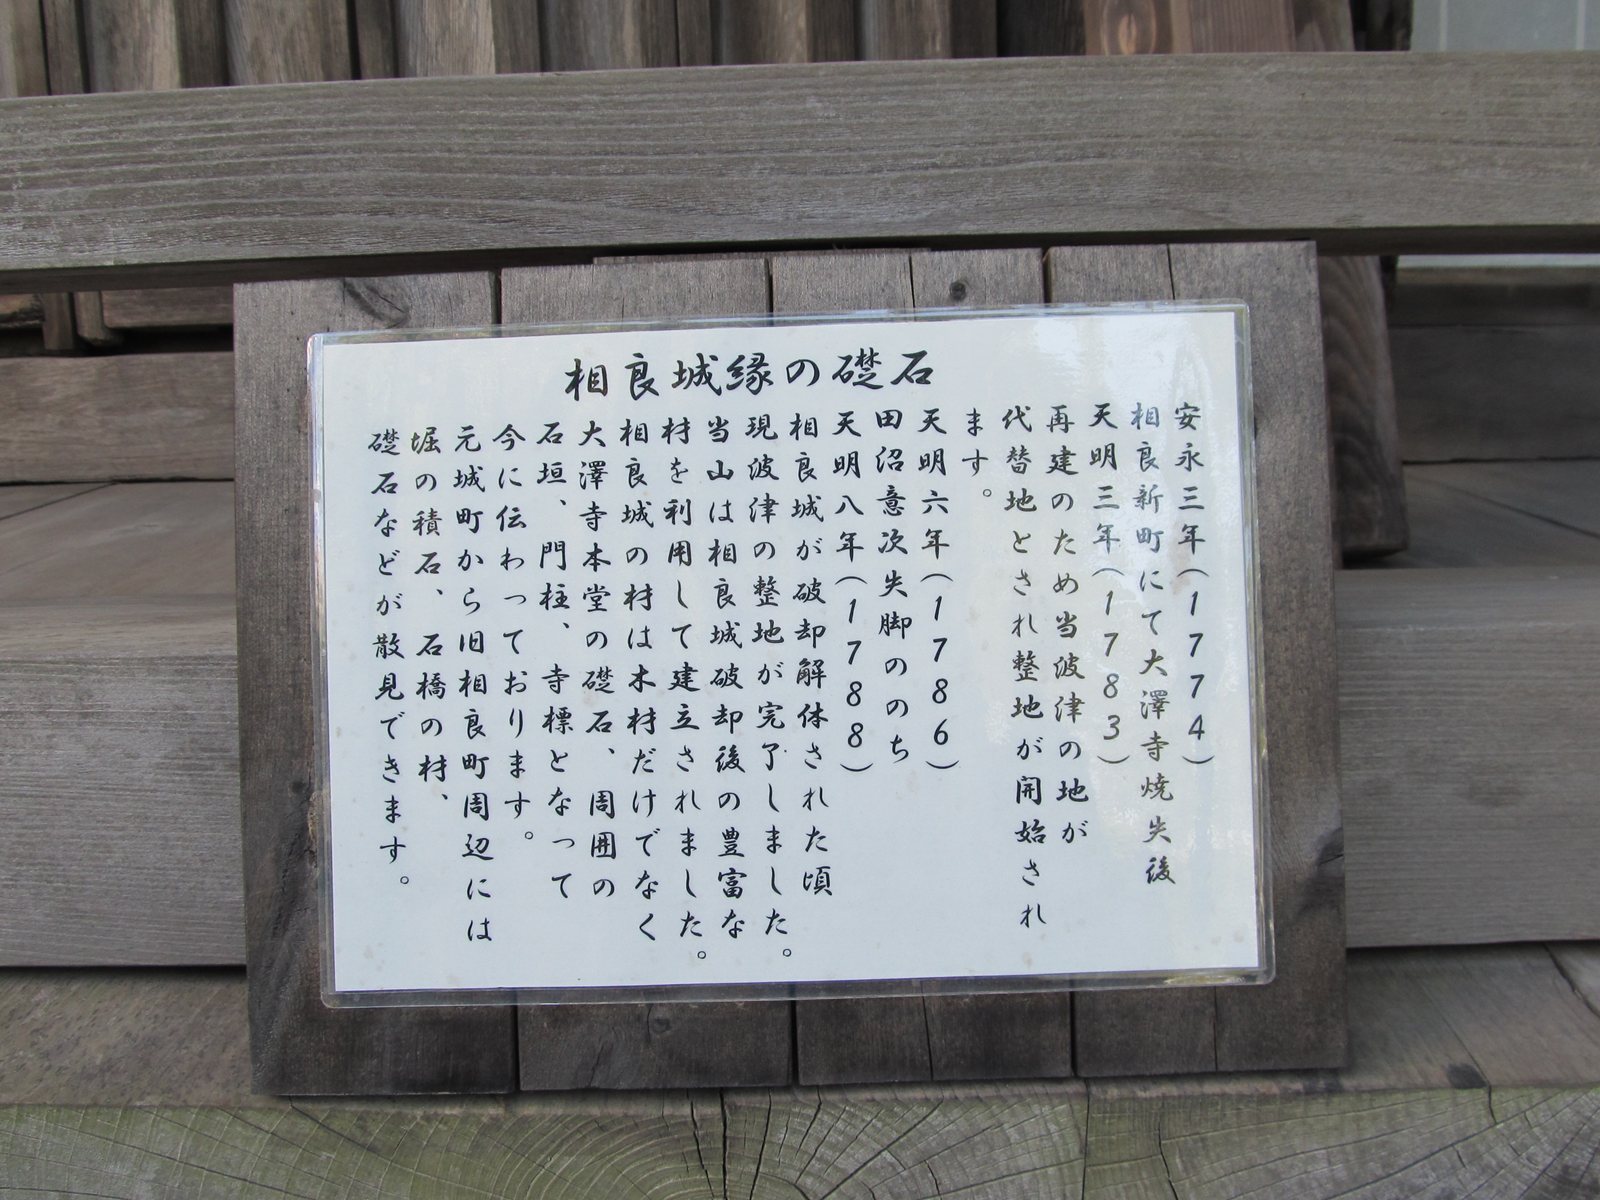 相良城縁の礎石
安永三年(1774)
相良新町にて大澤寺焼失後
天明三年(1783)
再建のため当波津の地が
代替地とされ整地が開始され
ます。
天明六年(1786)
田沼意次失脚ののち
天明八年(1788)
相良城が破却解体された頃
現波津の整地が完了しました。
当山は相良城破却後の豊富な
材を利用して建立されました。
相良城の材は木材だけでなく
大澤寺本堂の礎石、周囲の
石垣、門柱、寺標となって
今に伝わっております。
元城町から旧相良町周辺には
堀の積石、石橋の材、
礎石などが散見できます。